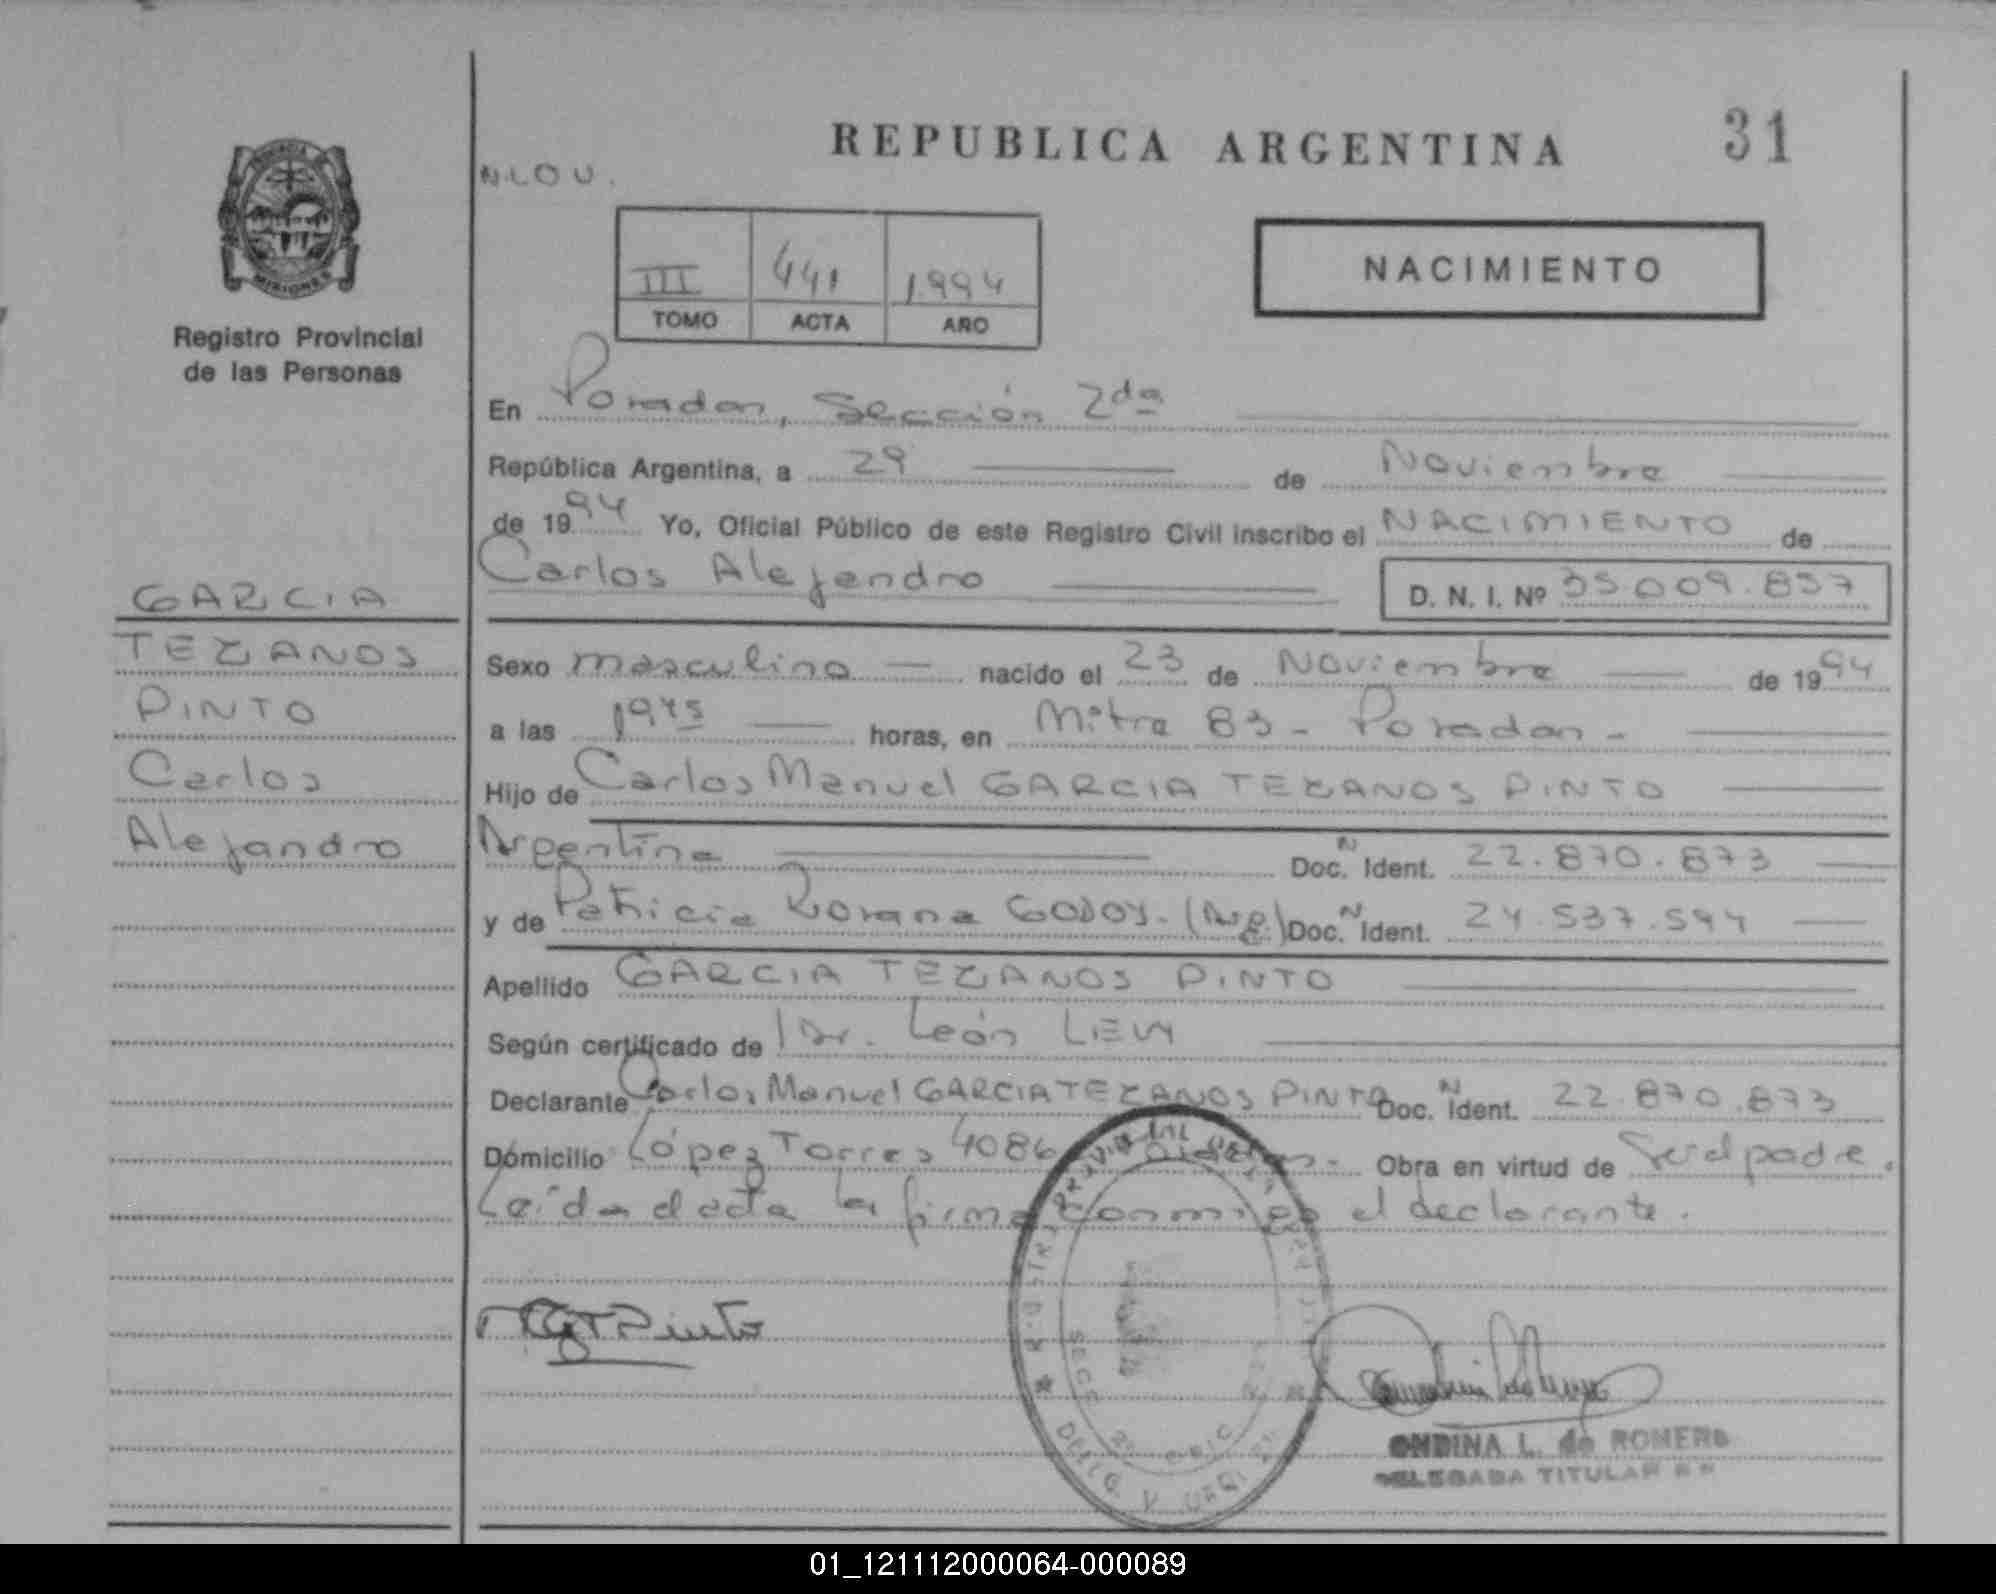 REPUBLICA ARGENTINA
31
N.LOU.
PROVINCIA DE
MISIONES
Registro Provincial
de las Personas
III 441 1994
TOMO ACTA AÑO
NACIMIENTO
En Posadas, Sección 2da
República Argentina, a 29 de Noviembre
de 1994 Yo, Oficial Público de este Registro Civil inscribo el NACIMIENTO de
Carlos Alejandro D. N. I. Nº 35.009.857
GARCIA
TEZANOS
PINTO
Carlos
Alejandro
Sexo masculino nacido el 23 de Noviembre de 1994
a las 1945 horas, en Mitre 83 - Posadas -
Hijo de Carlos Manuel GARCIA TEZANOS PINTO
Argentina Doc. N Ident. 22.870.873
y de Patricia Rosana GODOY. (Arg.) Doc. N Ident. 24.537.594
Apellido GARCIA TEZANOS PINTO
Según certificado de Dr. León LIEVY
Declarante Carlos Manuel GARCIA TEZANOS PINTO Doc. N Ident. 22.870.873
Domicilio López Torres 4086 Obra en virtud de Ser el padre.
Leída el acta la firma conmigo el declarante.
Pinto
SECC 2a
ONDINA L. de ROMERO
DELEGADA TITULAR
01_121112000064-000089